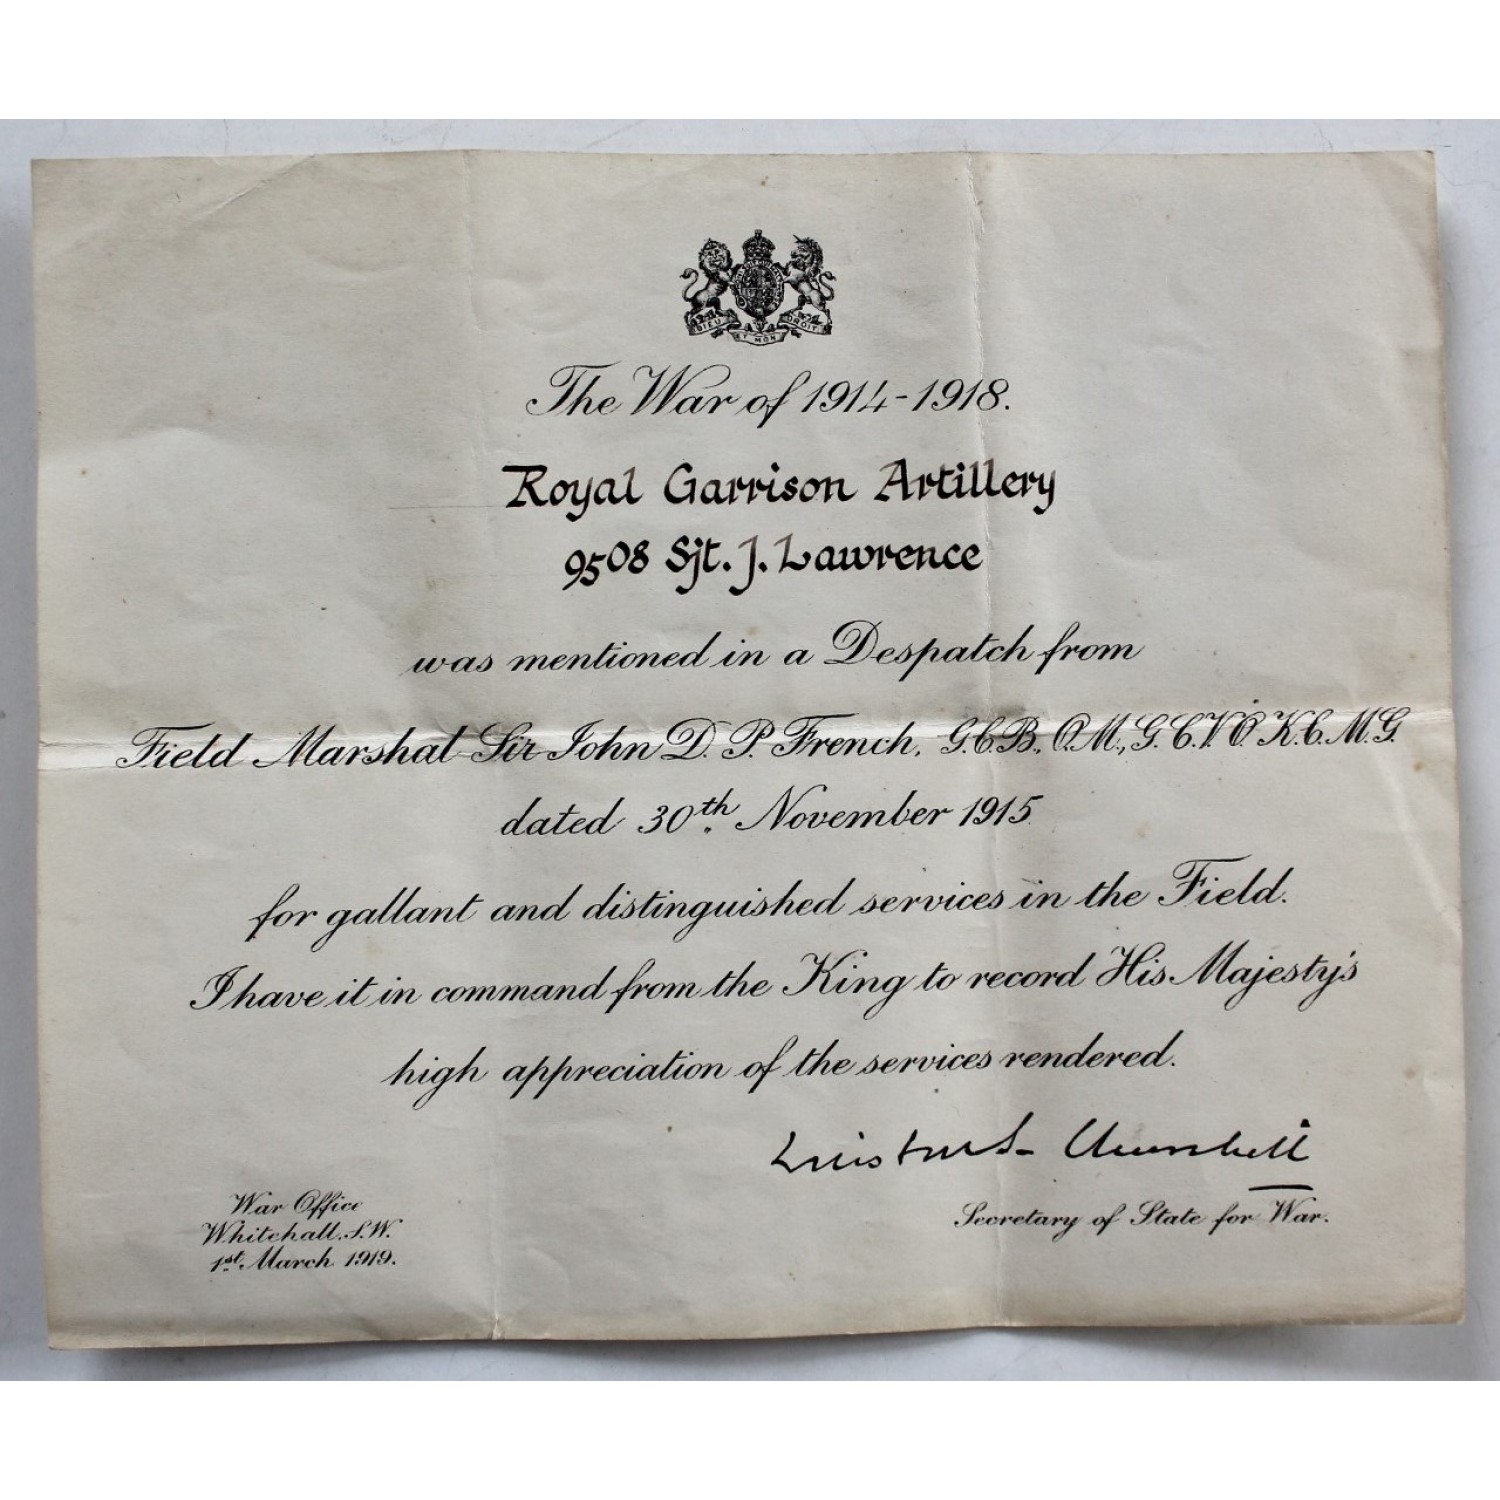 DIEU ET MON DROIT
The War of 1914-1918.
Royal Garrison Artillery
9508 Sjt. J. Lawrence
was mentioned in a Despatch from
Field Marshal Sir John D. P. French, G.C.B., O.M., G.C.V.O. K.C.M.G.
dated 30th. November 1915
for gallant and distinguished services in the Field.
I have it in command from the King to record His Majesty's
high appreciation of the services rendered.
Winston S. Churchill
Secretary of State for War.
War Office
Whitehall. S.W.
1st. March 1919.